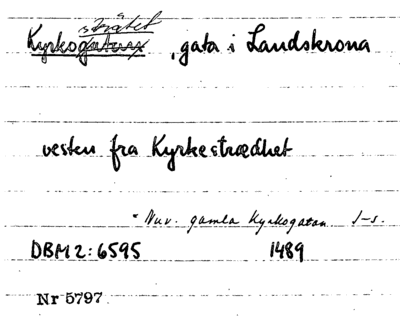 strätet
Kyrkogatan, gata i Landskrona
vesten fra Kyrkestrædhet
"Nuv. gamla Kyrkogatan J-s.
DBM 2:6595 1489
Nr 5797